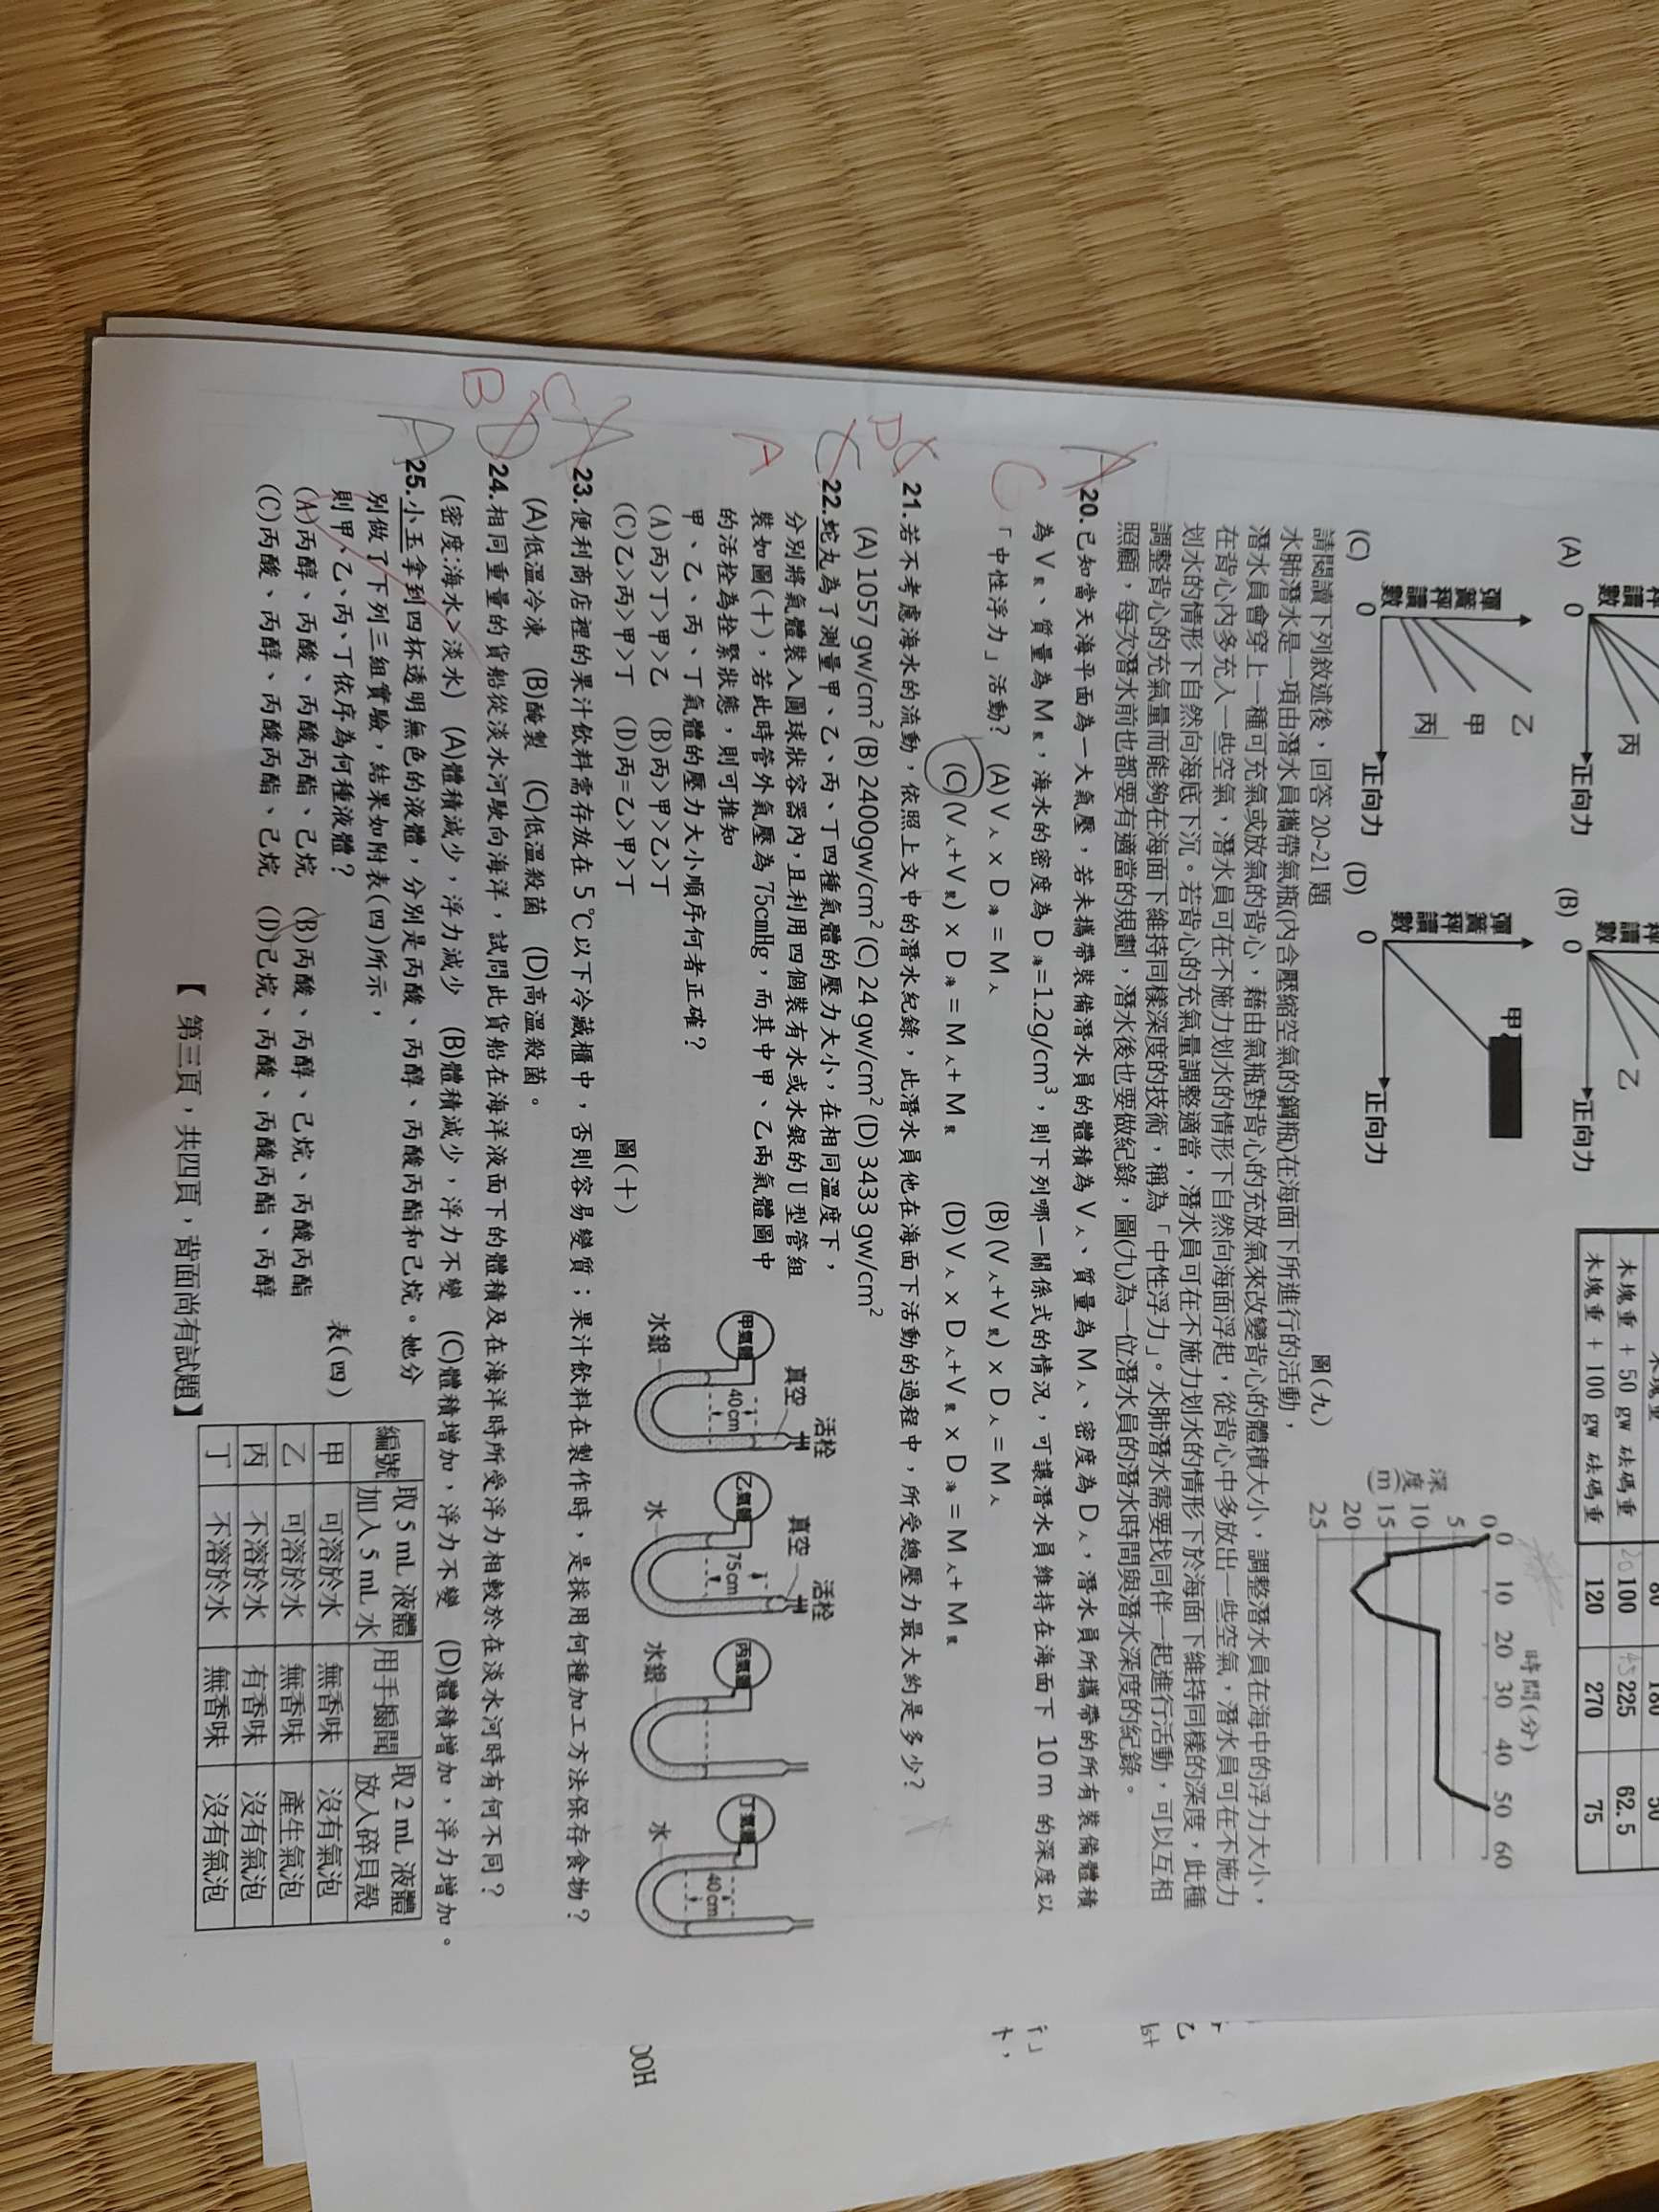 木塊重 + 50 gw 砝碼重 100 225 62.5
木塊重 + 100 gw 砝碼重 120 270 75
(A) 0 丙 正向力
(B) 0 乙 正向力
(C) 彈簧秤讀數 0 乙 甲 丙 正向力
(D) 彈簧秤讀數 0 甲 正向力
請閱讀下列敘述後，回答 20~21 題
圖(九)
水肺潛水是一項由潛水員攜帶氣瓶(內含壓縮空氣的鋼瓶)在海面下所進行的活動，
潛水員會穿上一種可充氣或放氣的背心，藉由氣瓶對背心的充放氣來改變背心的體積大小，調整潛水員在海中的浮力大小，
在背心內多充入一些空氣，潛水員可在不施力划水的情形下自然向海面浮起，從背心中多放出一些空氣，潛水員可在不施力
划水的情形下自然向海底下沉。若背心的充氣量調整適當，潛水員可在不施力划水的情形下於海面下維持同樣的深度，此種
調整背心的充氣量而能夠在海面下維持同樣深度的技術，稱為「中性浮力」。水肺潛水需要找同伴一起進行活動，可以互相
照顧，每次潛水前也都要有適當的規劃，潛水後也要做紀錄，圖(九)為一位潛水員的潛水時間與潛水深度的紀錄。
時間(分)
0 10 20 30 40 50 60
深度(m)
0
5
10
15
20
25
20.已知當天海平面為一大氣壓，若未攜帶裝備潛水員的體積為V人、質量為M人、密度為D人，潛水員所攜帶的所有裝備體積
為V裝、質量為M裝，海水的密度為D海=1.2g/cm³，則下列哪一關係式的情況，可讓潛水員維持在海面下 10 m 的深度以
「中性浮力」活動？ (A)V人×D海=M人 (B)(V人+V裝)×D人=M人
(C)(V人+V裝)×D海=M人+M裝 (D)V人×D人+V裝×D海=M人+M裝
21.若不考慮海水的流動，依照上文中的潛水紀錄，此潛水員他在海面下活動的過程中，所受總壓力最大約是多少？
(A) 1057 gw/cm² (B) 2400gw/cm² (C) 24 gw/cm² (D) 3433 gw/cm²
22.蛇丸為了測量甲、乙、丙、丁四種氣體的壓力大小，在相同溫度下，
分別將氣體裝入圓球狀容器內，且利用四個裝有水或水銀的U型管組
裝如圖(十)，若此時管外氣壓為 75cmHg，而其中甲、乙兩氣體圖中
的活栓為拴緊狀態，則可推知
甲、乙、丙、丁氣體的壓力大小順序何者正確？
(A)丙>丁>甲>乙 (B)丙>甲>乙>丁
(C)乙>丙>甲>丁 (D)丙=乙>甲>丁
圖(十)
活栓 真空 甲氣體 40cm 水銀
活栓 真空 乙氣體 75cm 水
丙氣體 水銀
丁氣體 40cm 水
23.便利商店裡的果汁飲料需存放在 5℃以下冷藏櫃中，否則容易變質；果汁飲料在製作時，是採用何種加工方法保存食物？
(A)低溫冷凍 (B)醃製 (C)低溫殺菌 (D)高溫殺菌。
24.相同重量的貨船從淡水河駛向海洋，試問此貨船在海洋液面下的體積及在海洋時所受浮力相較於在淡水河時有何不同？
(密度:海水>淡水) (A)體積減少，浮力減少 (B)體積減少，浮力不變 (C)體積增加，浮力不變 (D)體積增加，浮力增加。
25.小玉拿到四杯透明無色的液體，分別是丙酸、丙醇、丙酸丙酯和己烷。她分
別做了下列三組實驗，結果如附表(四)所示，
則甲、乙、丙、丁依序為何種液體？
表(四)
(A)丙醇、丙酸、丙酸丙酯、己烷 (B)丙酸、丙醇、己烷、丙酸丙酯
(C)丙酸、丙醇、丙酸丙酯、己烷 (D)己烷、丙酸、丙酸丙酯、丙醇
編號 取 5 mL 液體加入 5 mL 水 用手搧聞 取 2 mL 液體放入碎貝殼
甲 可溶於水 無香味 沒有氣泡
乙 可溶於水 無香味 產生氣泡
丙 不溶於水 有香味 沒有氣泡
丁 不溶於水 無香味 沒有氣泡
【 第三頁，共四頁，背面尚有試題】
A
C
D
C
A
A
C
D
B
A
OOH